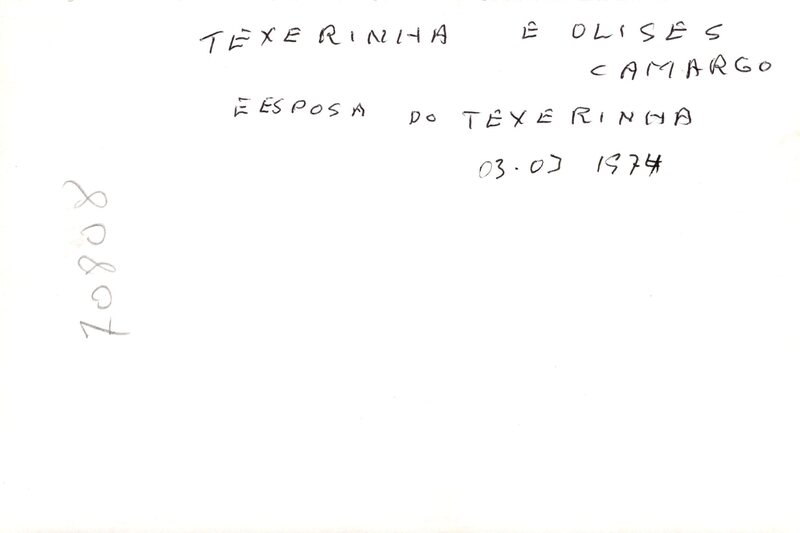 TEXERINHA E OLISES
CAMARGO
E ESPOSA DO TEXERINHA
03.03 1974
70808